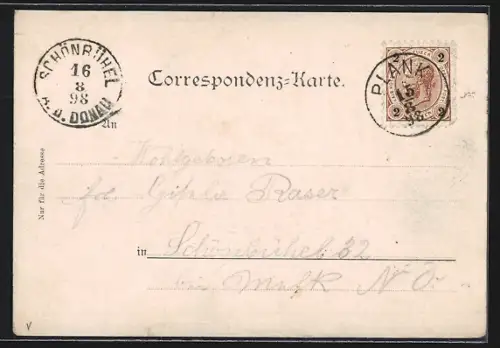 SCHÖNBÜHEL
16
8
98
A. D. DONAU
Correspondenz-Karte.
2
PLANK
15
8
98
2 2
An
Wohlgeboren
Gisela Raser
Nur für die Adresse
in Schönbühel 32
bei Melk N. Ö.
v